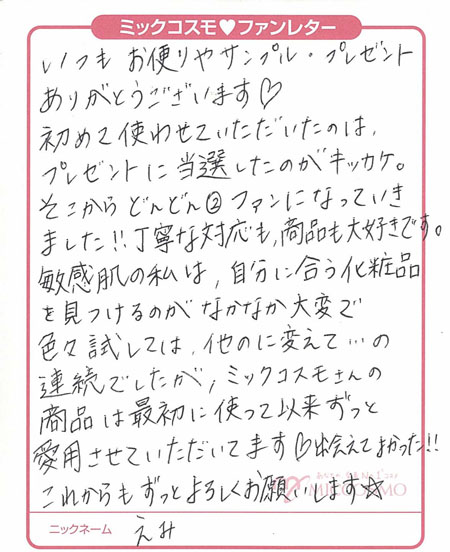 ミックコスモ♥ファンレター
いつも お便りやサンプル・プレゼント
ありがとうございます♡
初めて使わせていただいたのは、
プレゼントに当選したのがキッカケ。
そこから どんどん② ファンになっていき
ました!! 丁寧な対応も、商品も大好きです。
敏感肌の私は、自分に合う化粧品
を見つけるのが なかなか 大変で
色々試しては、他のに変えて…の
連続でしたが、ミックコスモさんの
商品は最初に使って以来ずっと
愛用させていただいてます♡出会えてよかった!!
これからも ずっと よろしくお願いします☆
MICCOSMO
ニックネーム
えみ